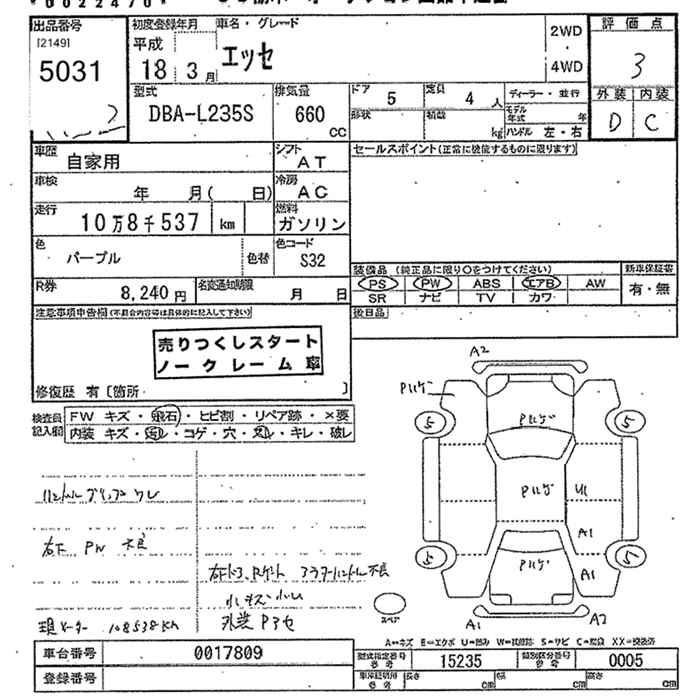 出品番号 初度登録年月 車名・グレード 2WD 評価点
[2149] 平成 エッセ
5031 18年 3月 4WD 3
型式 排気量 ドア 5 定員 4人 ディーラー・並行 外装 内装
DBA-L235S 660 CC 形状 積載 kg モデル年式 年 D C
ハンドル 左・右
車歴 自家用 シフト AT セールスポイント(正常に機能するものに限ります)
車検 年 月( 日) 冷房 AC
走行 10万8千537 km 燃料 ガソリン
色 パープル 色替 色コード S32
R券 8,240円 名変通知期限 月 日
装備品(純正品に限り○をつけてください) 新車保証書
PS PW ABS エアB AW 有・無
SR ナビ TV カワ
注意事項申告欄(不具合内容等は具体的に記入して下さい) 後日品
売りつくしスタート
ノークレーム車
修復歴 有〔箇所 〕
検査員記入欄 FW キズ・飛石・ヒビ割・リペア跡・×要
内装 キズ・汚レ・コゲ・穴・スレ・キレ・破レ
A2
Pハゲ
5 Pハゲ 5
Pハゲ U1
A1
5 Pハゲ A1 5
A1 A2
ハンドルグリップ ウレ
右下 PW 不良
アウターハンドル不良
小キズ 小凹
現メーター 108538Km
スペア
A=キズ E=エクボ U=凹み W=補修跡 S=サビ C=腐食 XX=交換済
車台番号 0017809 型式指定番号 参考 15235 類別区分番号 参考 0005
登録番号 車庫証明用 参考 長さ cm 幅 cm 高さ cm